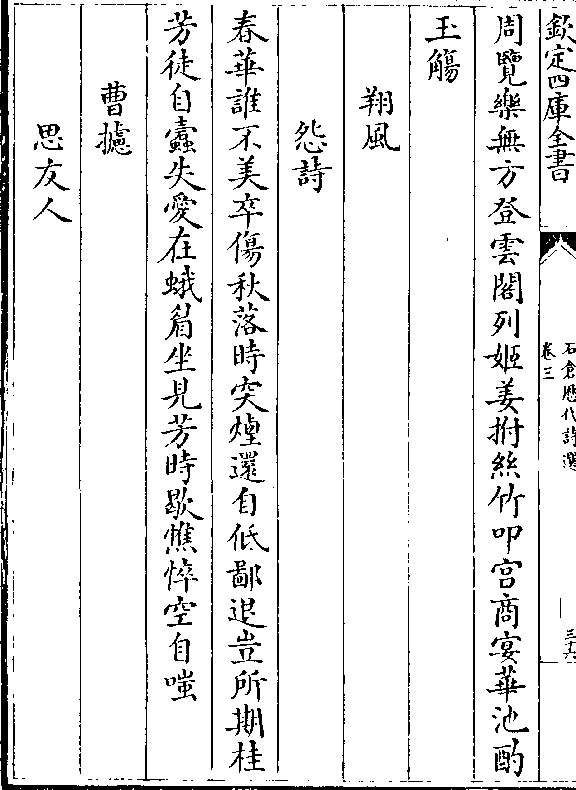 欽定四庫全書
石倉歴代詩選
卷三
三十六
周覽樂無方登雲閣列姬姜拊絲竹叩宫商宴華池酌
玉觴
翔風
怨詩
春華誰不美卒傷秋落時突煙還自低鄙退豈所期桂
芳徒自蠹失愛在蛾眉坐見芳時歇憔悴空自嗤
曹攄
思友人